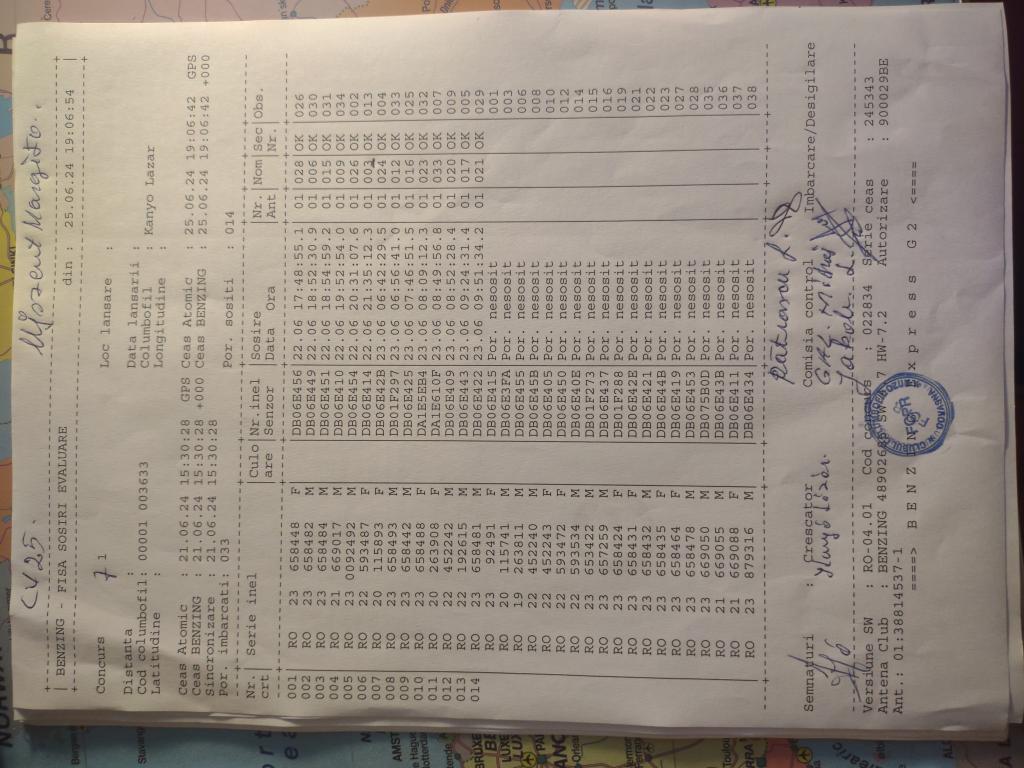 CV 25. Ujszent Margita.
BENZING - FISA SOSIRI EVALUARE din : 25.06.24 19:06:54
Concurs 7 1 Loc lansare :
Distanta : Data lansarii :
Cod columbofil: 00001 003633 Columbofil : Kanyo Lazar
Latitudine : Longitudine :
Ceas Atomic : 21.06.24 15:30:28 GPS Ceas Atomic : 25.06.24 19:06:42 GPS
Ceas BENZING : 21.06.24 15:30:28 +000 Ceas BENZING : 25.06.24 19:06:42 +000
Sincronizare : 21.06.24 15:30:28
Por. imbarcati: 033 Por. sositi : 014
Nr. | Serie inel |Culo|Nr.inel |Sosire |Nr. |Nom|Sec|Obs.
cert |are |Senzor |Data Ora |Ant| |Nr.|
001 RO 23 658448 F DB06E456 22.06 17:48:55.1 01 028 OK 026
002 RO 23 658482 M DB06E449 22.06 18:52:30.9 01 006 OK 030
003 RO 23 658484 M DB06E451 22.06 18:54:59.2 01 015 OK 031
004 RO 21 669017 M DB06E410 22.06 19:52:54.0 01 009 OK 034
005 RO 23 0092492 M DB06E454 22.06 20:31:07.6 01 026 OK 002
006 RO 22 593487 F DB06E414 22.06 21:35:12.3 01 003 OK 013
007 RO 20 115893 F DB06E42B 23.06 06:42:29.5 01 024 OK 004
008 RO 23 658493 M DB01F297 23.06 06:56:41.0 01 012 OK 033
009 RO 23 658442 M DB06E425 23.06 07:46:51.5 01 016 OK 025
010 RO 23 658498 F DA1E5EB4 23.06 08:09:12.3 01 023 OK 032
011 RO 20 263908 F DA1E610F 23.06 08:49:56.8 01 033 OK 007
012 RO 22 453242 M DB06E409 23.06 08:52:28.4 01 020 OK 009
013 RO 20 192615 M DB06E443 23.06 09:24:31.4 01 017 OK 005
014 RO 23 658481 M DB06E422 23.06 09:51:34.2 01 021 OK 029
RO 23 92491 F DB06E415 Por. nesosit 001
RO 20 115741 F DB06E3FA Por. nesosit 003
RO 19 263811 M DB06E455 Por. nesosit 006
RO 22 452240 M DB06E45B Por. nesosit 008
RO 22 452243 M DB06E405 Por. nesosit 010
RO 22 593472 F DB06E450 Por. nesosit 012
RO 22 593534 M DB06E40E Por. nesosit 014
RO 23 653422 M DB01F273 Por. nesosit 015
RO 23 657259 M DB06E437 Por. nesosit 016
RO 23 658424 F DB01F288 Por. nesosit 019
RO 23 658431 F DB06E42E Por. nesosit 021
RO 23 658432 M DB06E421 Por. nesosit 022
RO 23 658464 F DB06E44B Por. nesosit 023
RO 23 658478 M DB06E419 Por. nesosit 027
RO 23 669050 M DB06E453 Por. nesosit 028
DB75B0D Por. nesosit 035
RO 21 669055 M DB06E43B Por. nesosit 036
RO 21 669088 F DB06E411 Por. nesosit 037
RO 23 879316 M DB06E434 Por. nesosit 038
Semnaturi : Crescator Comisia control Imbarcare/Desigilare
Versiune SW : RO-04.01 Cod concurs : 022834 Serie ceas : 245343
Antena Club : BENZING 4890268 SW 7 HW-7.2 Autorizare : 900029BE
Ant.: 01:388114537-1
====> B E N Z I N G E x p r e s s G 2 <====